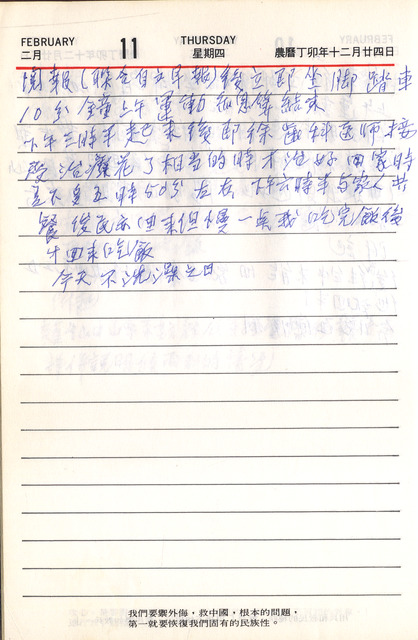 FEBRUARY 11 THURSDAY
二月 星期四 農曆丁卯年十二月廿四日
閱報(聯合自立早報)後立即坐腳踏車
10分鐘上午運動 結束
下午三時半起來後即 齒科医師接
受治療花了相当的時才治好回家時
五時50分左右 下午六時半与家人共
餐俊民 回來但慢一点我吃完飯後
才回來吃飯
今天不洗澡之日
我們要禦外侮,救中國,根本的問題,
第一就要恢復我們固有的民族性。